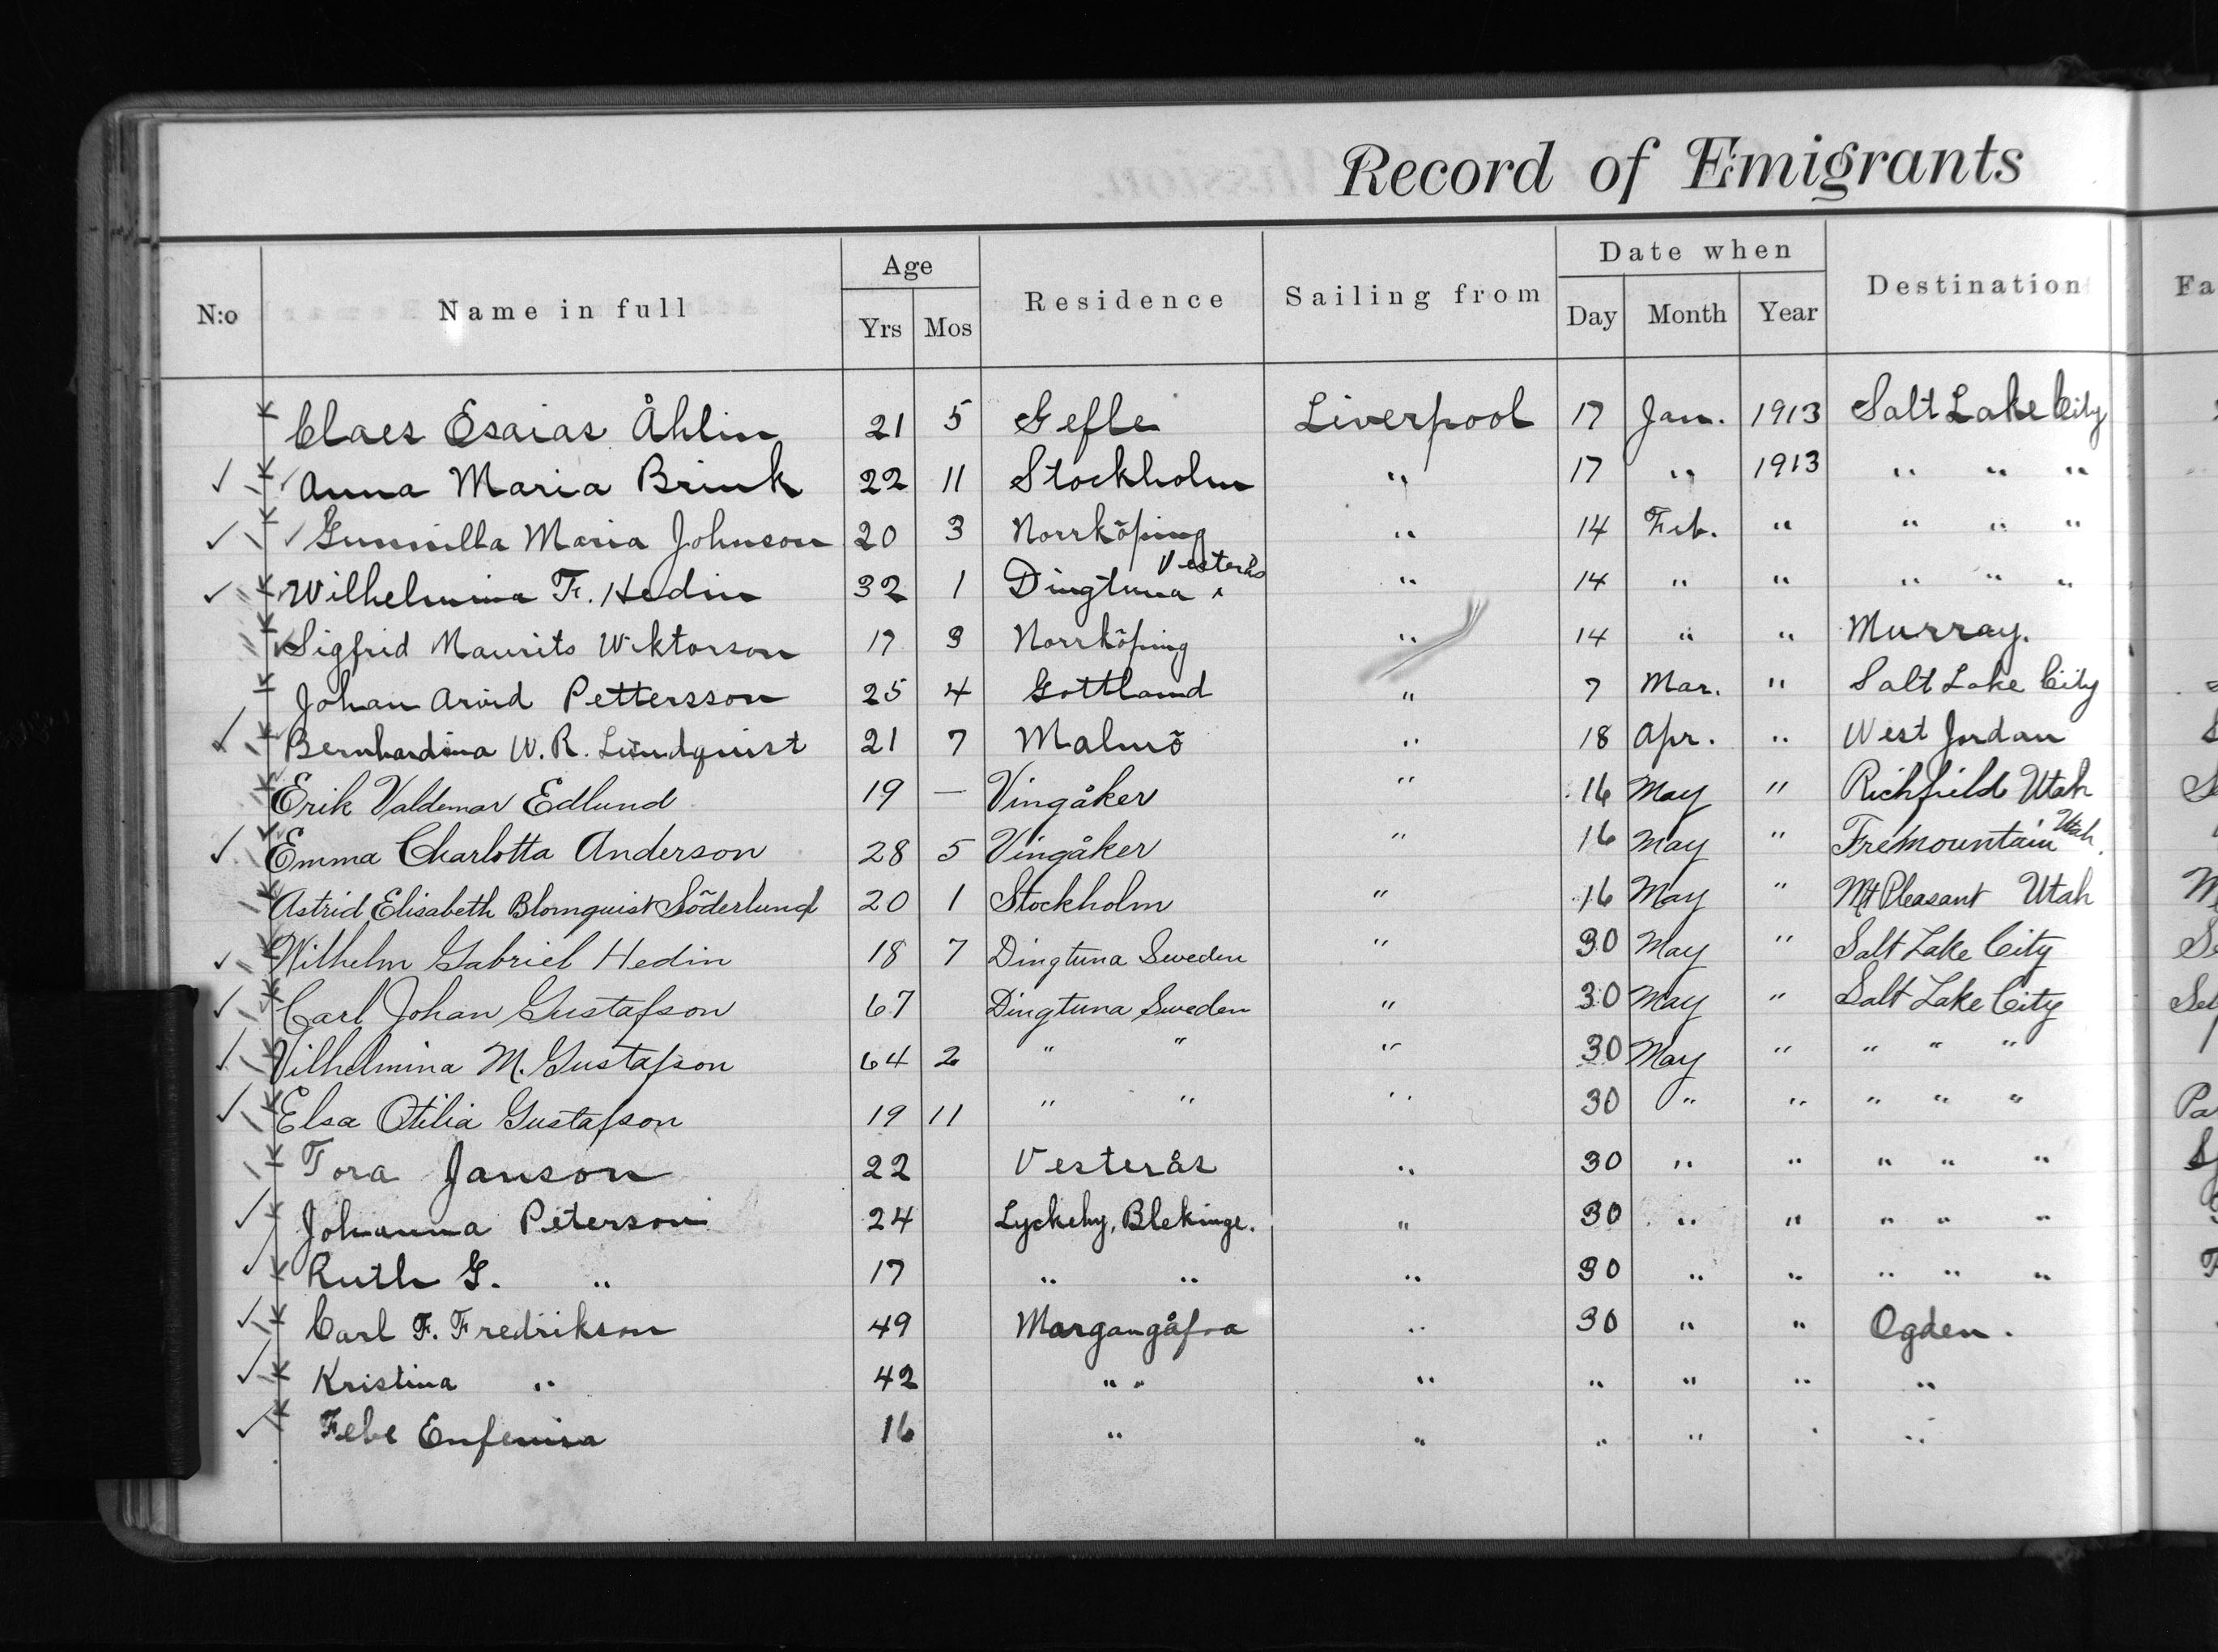 Record of Emigrants
N:o Name in full Age Yrs Mos Residence Sailing from Date when Day Month Year Destination Fa
Claes Esaias Åhlin 21 5 Gefle Liverpool 17 Jan. 1913 Salt Lake City
Anna Maria Brink 22 11 Stockholm " 17 " 1913 " " "
Gunnilla Maria Johnson 20 3 Norrköping " 14 Feb. " " " "
Wilhelmina Fr. Hedin 32 1 Dingtuna Vesterås " 14 " " " " "
Sigfrid Maurits Wiktorson 17 3 Norrköping " 14 " " Murray.
Johan Arvid Pettersson 25 4 Gottland " 7 Mar. " Salt Lake City
Bernhardina W. R. Lundquist 21 7 Malmö " 18 Apr. " West Jordan
Erik Valdemar Edlund 19 — Vingåker " 16 May " Richfield Utah
Emma Charlotta Anderson 28 5 Vingåker " 16 May " Fremountain Utah.
Astrid Elisabeth Blomquist Söderlund 20 1 Stockholm " 16 May " Mt Pleasant Utah
Wilhelm Gabriel Hedin 18 7 Dingtuna Sweden " 30 May " Salt Lake City
Carl Johan Gustafson 67 Dingtuna Sweden " 30 May " Salt Lake City
Vilhelmina M. Gustafson 64 2 " " " 30 May " " " "
Elsa Otilia Gustafson 19 11 " " " 30 " " " " "
Tora Janson 22 Vesterås " 30 " " " " "
Johanna Peterson 24 Lyckeby, Blekinge. " 30 " " " " "
Ruth G. " 17 " " " 30 " " " " "
Carl F. Fredrikson 49 " 30 " " Ogden.
Kristina " 42 " " " " " " "
Febe Eufemia 16 " " " " " "